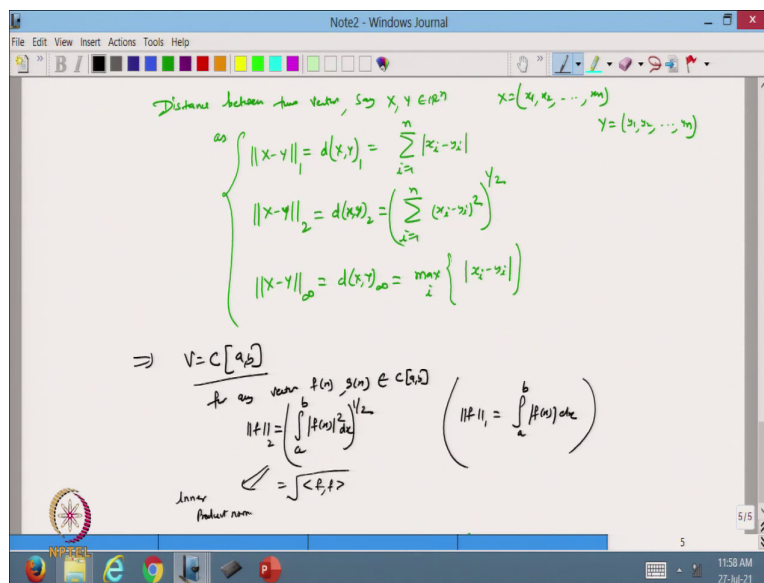 Note2 - Windows Journal
File Edit View Insert Actions Tools Help
B I
Distance between two vectors, say X, Y ∈ ℝⁿ X = (x₁, x₂, ..., xₙ)
Y = (y₁, y₂, ..., yₙ)
as ||X-Y||₁ = d(X,Y)₁ = ∑ᵢ₌₁ⁿ |xᵢ-yᵢ|
||X-Y||₂ = d(X,Y)₂ = (∑ᵢ₌₁ⁿ (xᵢ-yᵢ)²)^{1/2}
||X-Y||_∞ = d(X,Y)_∞ = max_i { |xᵢ-yᵢ| }
⇒ V = C[a,b]
for any vector f(x), g(x) ∈ C[a,b]
||f||₂ = (∫ₐᵇ |f(x)|² dx)^{1/2} ( ||f||₁ = ∫ₐᵇ |f(x)| dx )
= √<f,f>
Inner
Product norm
NPTEL
5/5
5
11:58 AM
27-Jul-21